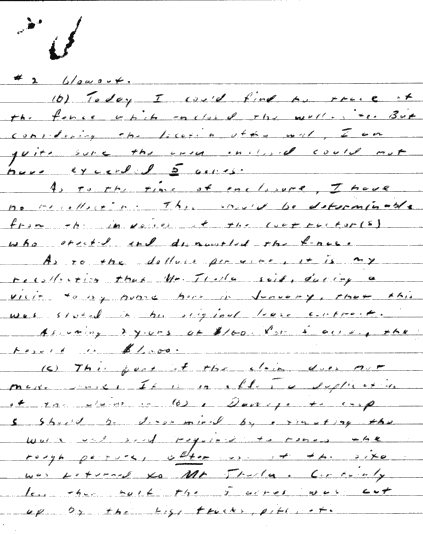 #2 blowout.
(b) Today I could find no trace of
the fence which enclosed the well site. But
considering the location of the well, I am
quite sure the area enclosed could not
have exceeded 5 acres.
As to the time of enclosure, I have
no recollection. This should be determinable
from the invoices of the contractor(s)
who erected and dismantled the fence.
As to the dollars per acre, it is my
recollection that Mr. said, during a
visit to my home here in January, that this
was stated in his original lease contract.
Assuming 2 years at $100 for 5 acres, the
result is $1,000.
(c) This part of the claim does not
make sense. It is in effect a duplication
of the claim in (b). Damage to crop
s should be determined by estimating the
work and seed required to renew the
rough pasture, after the site
was returned to Mr. Certainly
less than half the 5 acres was cut
up by the big trucks, pits, et.